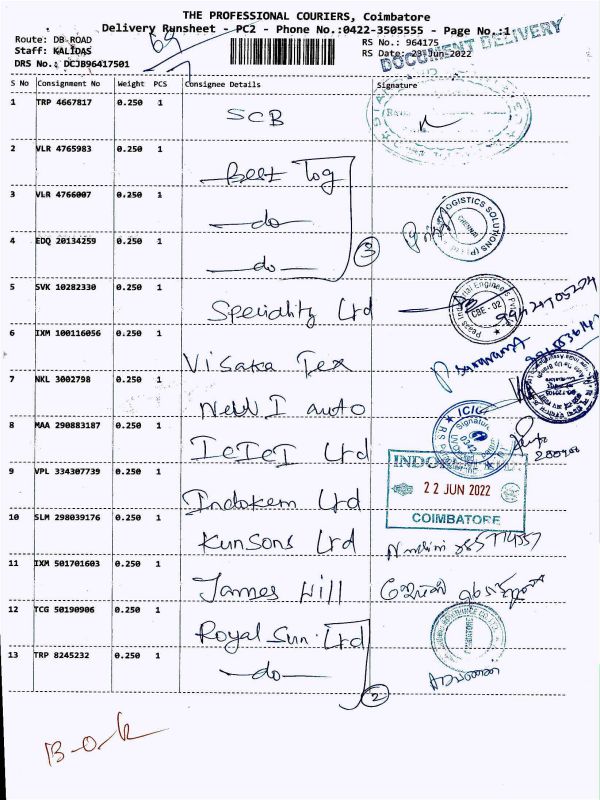 THE PROFESSIONAL COURIERS, Coimbatore
Delivery Runsheet - PC2 - Phone No.:0422-3505555 - Page No.:1
Route: DB ROAD
RS No.: 964175
Staff: KALIDAS
RS Date: 23-Jun-2022
DRS No.: DCJB96417501
DOCUMENT DELIVERY
69
S No Consignment No Weight PCS Consignee Details Signature
1 TRP 4667817 0.250 1 SCB
2 VLR 4765983 0.250 1 Best Log
3 VLR 4766007 0.250 1 -do-
LOGISTICS SOLUTIONS (P) LTD
CHENNAI
4 EDQ 20134259 0.250 1 -do-
3
5 SVK 10282330 0.250 1 Speciality Ltd
CBE - 02
6 IXM 100116056 0.250 1 Visaka Tex
7 NKL 3002798 0.250 1 New I auto
8 MAA 290883187 0.250 1 ICICI Ltd
ICIC
Signatur
9 VPL 334307739 0.250 1 Indokem Ltd
22 JUN 2022
COIMBATORE
10 SLM 298039176 0.250 1 Kunsons Ltd
11 IXM 501701603 0.250 1 James Hill
12 TCG 50190906 0.250 1 Royal Sun. Ltd
13 TRP 8245232 0.250 1 -do-
2
B-O-K